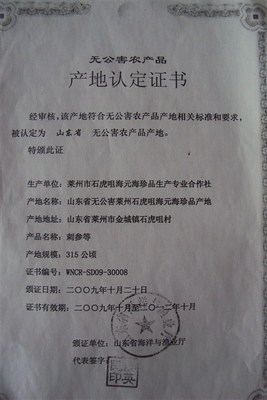 无公害农产品
产地认定证书
经审核，该产地符合无公害农产品产地相关标准和要求，
被认定为 山东省 无公害农产品产地。
特颁此证
生产单位：莱州市石虎咀海元海珍品生产专业合作社
产地名称：山东省无公害莱州石虎咀海元海珍品产地
产地地址：山东省莱州市金城镇石虎咀村
产品名称：刺参等
产地规模：315公顷
证书编号：WNCR-SD09-30008
颁证日期：二〇〇九年十月二十日
证书有效期：二〇〇九年十月至二〇一二年十月
颁证单位：山东省海洋与渔业厅
代表签字：